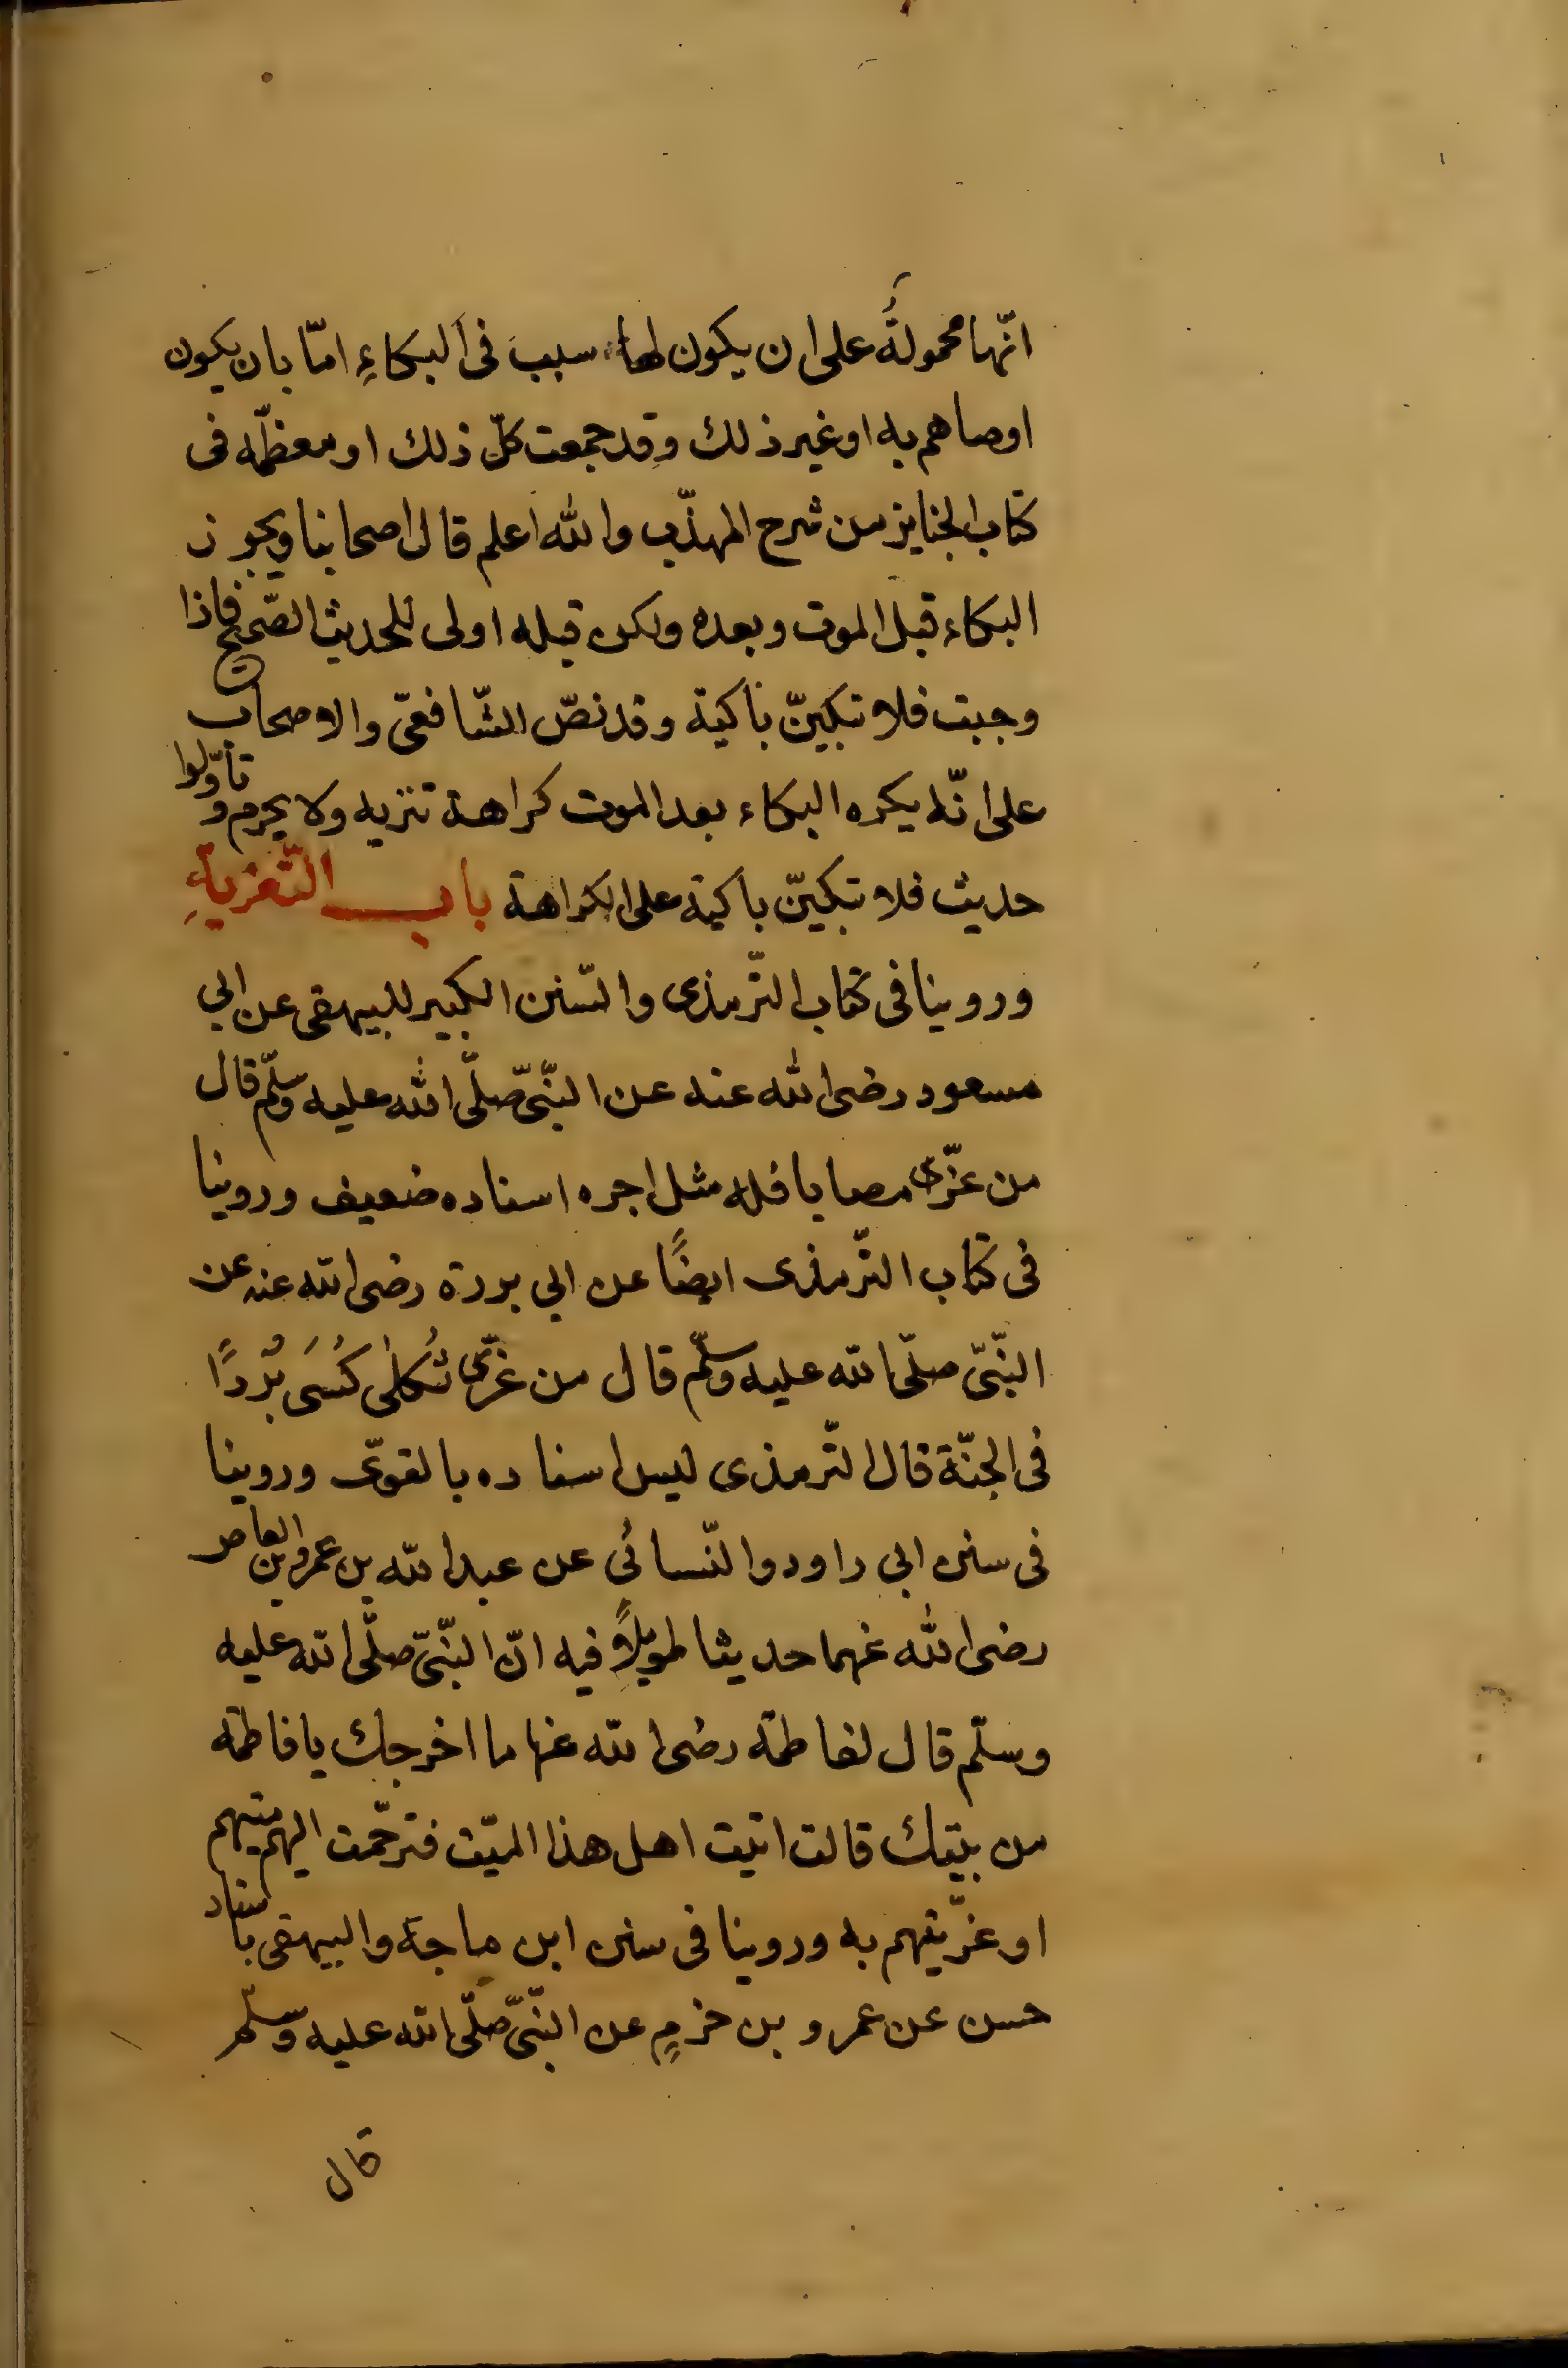 انّها محمولةُ على ان يكون لها سببَ فى البكاءِ امّا بان يكون
اوصاهم به او غير ذلك وقد جمعت كلّ ذلك او معظمّه فى
كتاب الجنايز من شرح المهذّب والله اعلم قال اصحابنا ويجوز
البكاء قبل الموت وبعده ولكن قبله اولى للحديث الصّحيح فاذا
وجبت فلا تبكينّ باكية وقد نصّ الشّافعىّ والاصحاب
على انّه يكره البكاء بعد الموت كراهة تنزيه ولا يحرم وتأوّلوا
حديث فلا تبكينّ باكية على الكراهة باب التّعزيةِ
وروينا فى كتاب التّرمذى والسّنن الكبير للبيهقى عن ابي
مسعود رضى الله عنه عن النّبىّ صلّى الله عليه وسلّم قال
من عزّى مصابا فله مثل اجره اسناده ضعيف وروينا
فى كتاب التّرمذى ايضًا عن ابي بردة رضى الله عنه عن
النّبىّ صلّى الله عليه وسلّم قال من عزّى ثُكلى كُسَى بُرْدًا
فى الجنّة قال التّرمذى ليس اسناده بالقوىّ وروينا
فى سنن ابي داود والنّسائى عن عبد الله بن عمرو بن العاص
رضى الله عنهما حديثا طويلًا فيه انّ النّبىّ صلّى الله عليه
وسلّم قال لفاطمة رضى الله عنها ما اخرجك يا فاطمة
من بيتك قالت اتيت اهل هذا الميّت فترحّمت اليهم ميتهم
او عزّيتهم به وروينا فى سنن ابن ماجة والبيهقى باسناد
حسن عن عمرو بن حزمٍ عن النّبىّ صلّى الله عليه وسلّم
قال